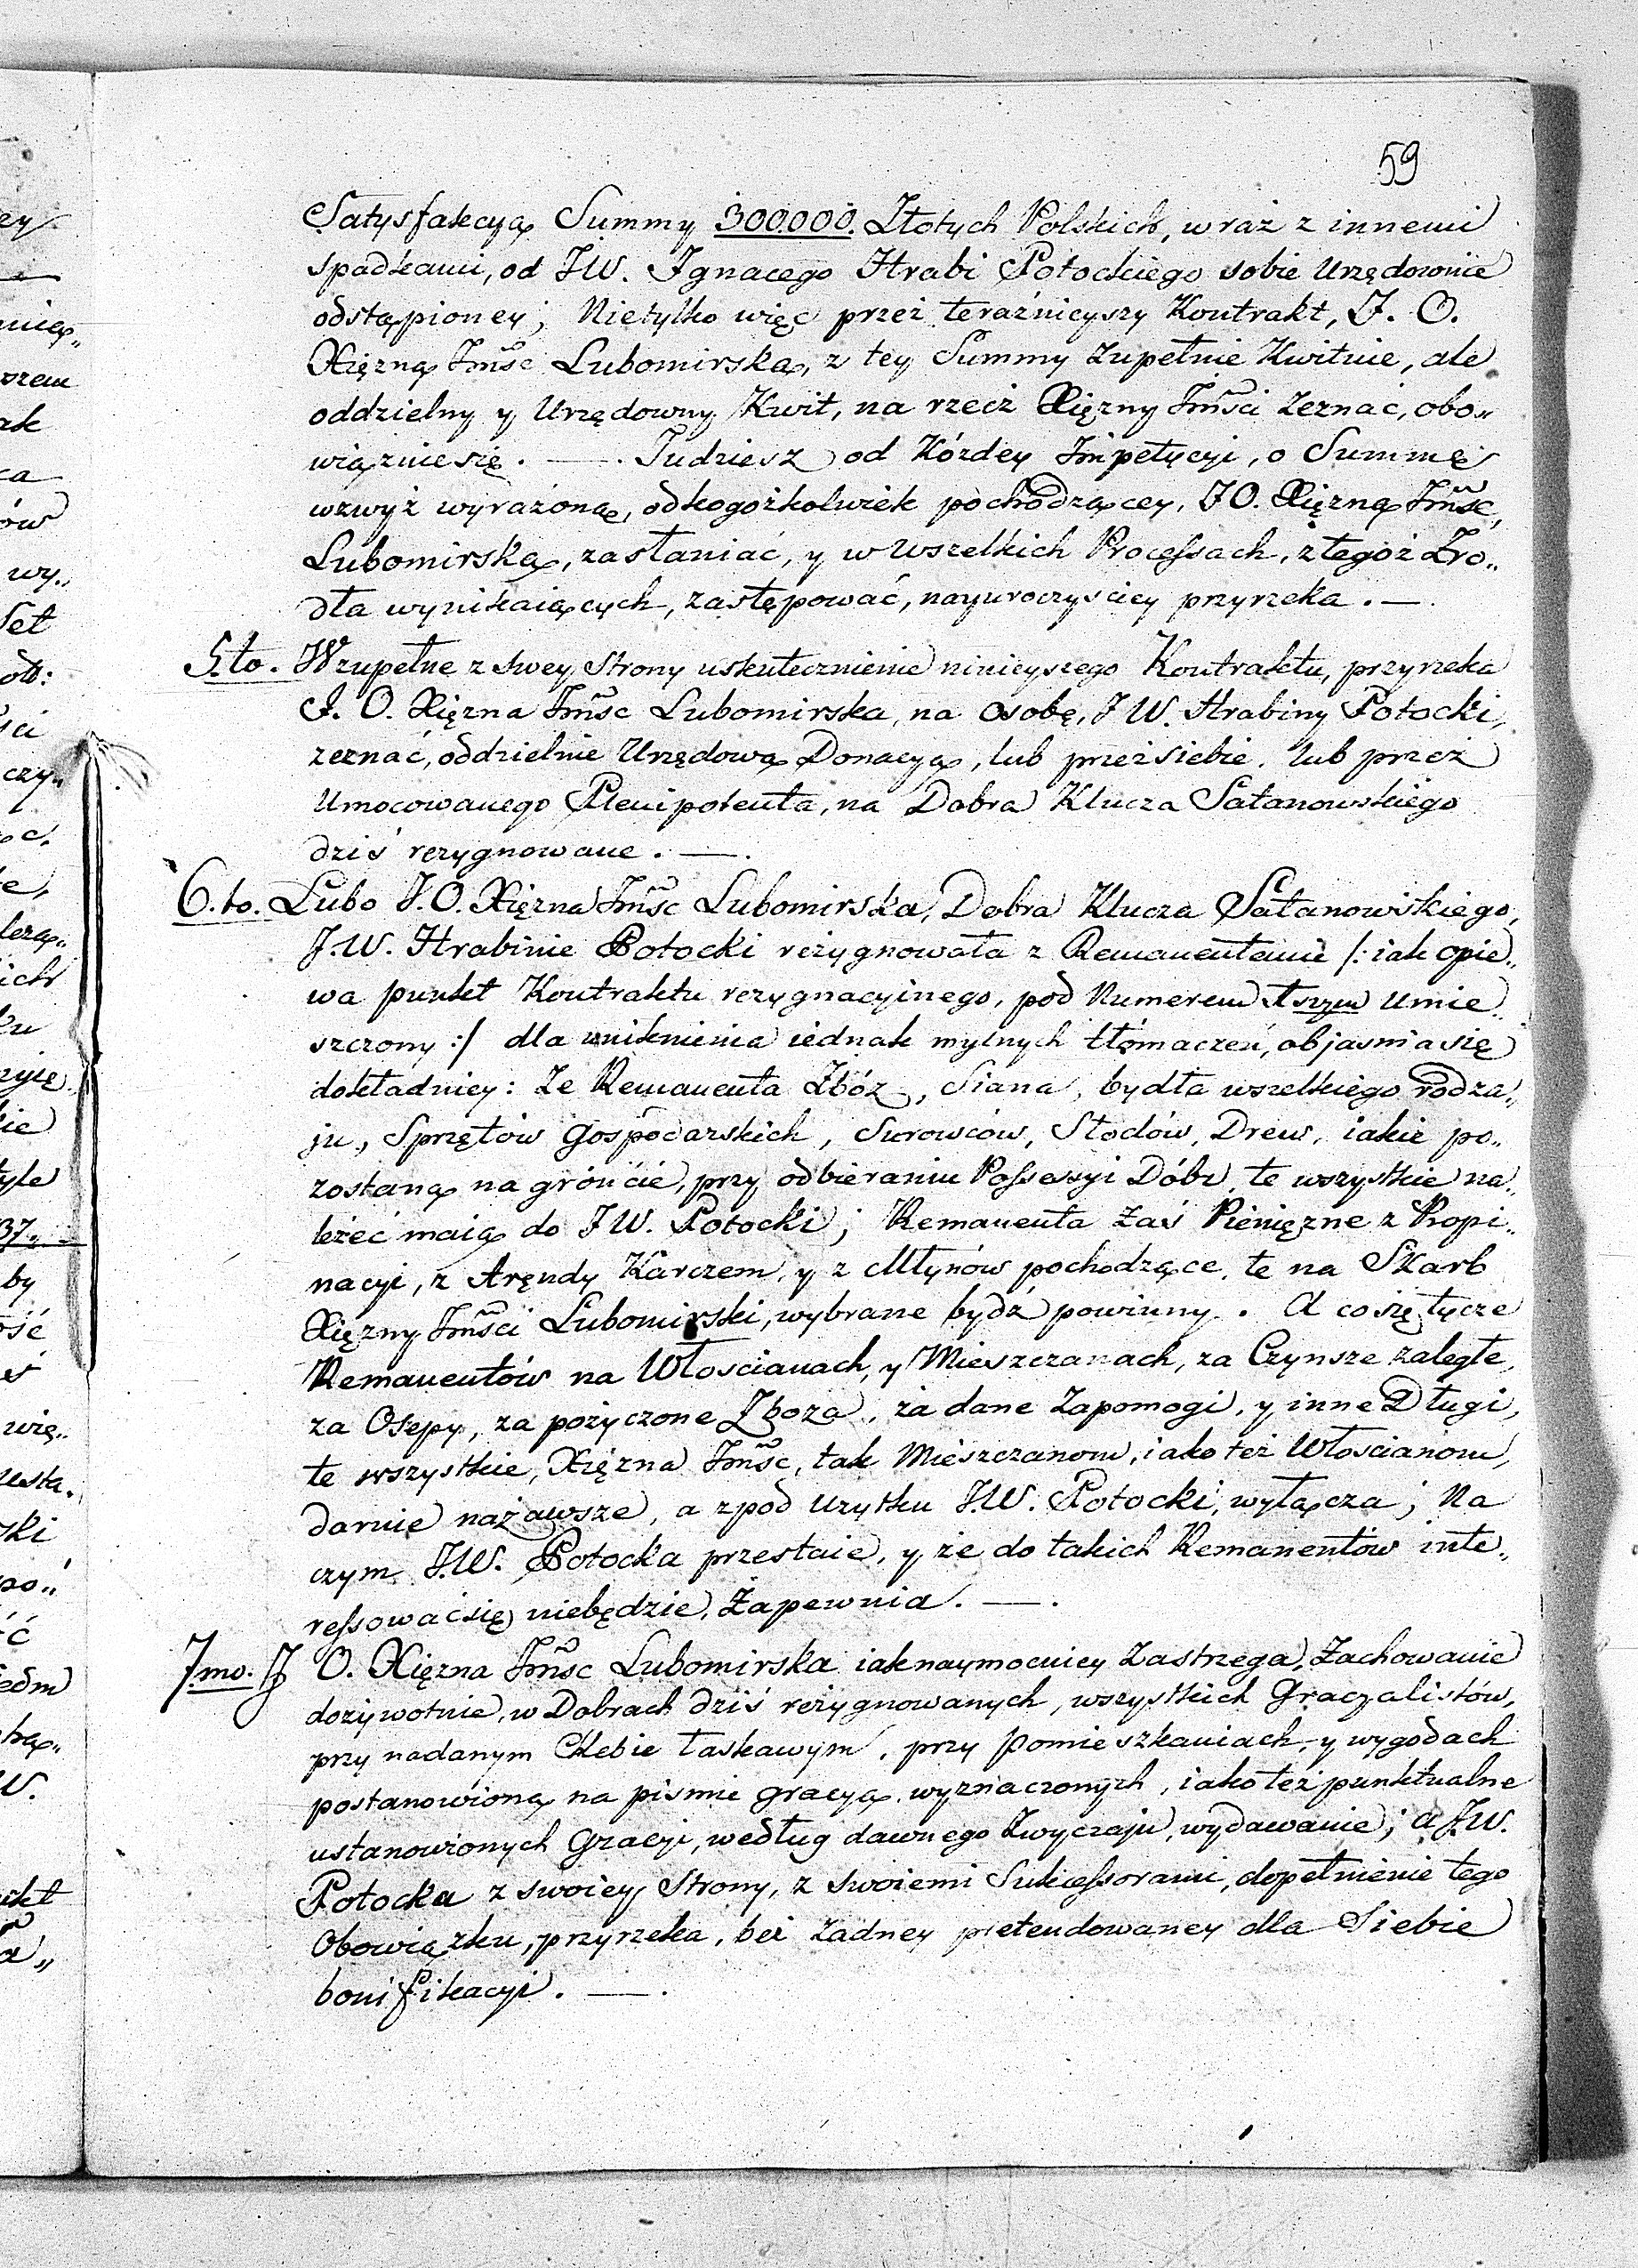 59
Satysfakcyą Summy 300000. Złotych Polskich, wraz z innemi
spadkami, od JW. Ignacego Hrabi Potockiego sobie Urzędownie
odstąpioney; Nietylko więc przez teraźnieyszy Kontrakt, J. O.
Xiężną Jmśc Lubomirską, z tey Summy Zupełnie Kwituie, ale
oddzielny y Urzędowny Kwit, na rzecz Xiężny Jmści Zeznać, obo„
wiązuie się. —. Tudziesz od Kóżdey Impetycyi, o Summę
wzwyż wyrażoną, odkogożkolwiek pochodzącey, JO. Xiężną Jmśc,
Lubomirską, zasłaniać, y w Wszelkich Processach, z tegoż Zro„
dła wynikaiących, zastępować, nayuroczyściey przyrzeka. —.
5.to. W zupełne z swey Strony uskutecznienie ninieyszego Kontraktu, przyrzeka
J. O. Xiężna Jmśc Lubomirska, na Osobę, J W. Hrabiny Potocki,
zeznać, oddzielnie Urzędową Donacyą, lub przez siebie, lub przez
Umocowanego Plenipotenta, na Dobra Klucza Satanowskiego
dziś rezygnowane. —.
6.to. Lubo J. O. Xiężna Jmśc Lubomirska, Dobra Klucza Satanowskiego,
J. W. Hrabinie Potocki rezygnowała z Remanentami /: iak opie„
wa punkt Kontraktu rezygnacyinego, pod Numerem 1szym Umie„
szczony :/ dla uniknienia iednak mylnych tłómaczeń, objaśnia się
dokładniey: Ze Remanenta Zbóż, Siana, bydła wszelkiego rodza„
ju, Sprzętów gospodarskich, Surowców, Słodów, Drew, iakie po„
zostaną na gróncie, przy odbieraniu Possessyi Dóbr, te wszystkie na„
leżeć maią do JW. Potocki; Remanenta Zaś Pieniężne z Propi„
nacyi, z Aręndy Karczem, y z Młynów pochodzące, te na Skarb
Xiężny Jmści Lubomirski, wybrane bydź powinny. A co się tycze
Remanentów na Włoscianach, y Mieszczanach, za Czynsze zaległe,
za Osepy, za pożyczone Zboża, za dane Zapomogi, y inne Długi,
te wszystkie, Xiężna Jmśc, tak Mieszczanom, iako też Włoscianom,
daruie nazawsze, a zpod Użytku J.W. Potocki, wyłącza; Na
czym J.W. Potocka przestaie, y że do takich Remanentów inte„
ressować się niebędzie, Zapewnia. —.
7.mo. J O. Xiężna Jmśc Lubomirska iaknaymocniey Zastrzega, Zachowanie
dożywotnie, w Dobrach dziś rezygnowanych, wszystkich Gracyalistów,
przy nadanym Chlebie łaskawym, przy Pomieszkaniach, y wygodach
postanowioną na pismie gracyą, wyznaczonych, iako też punktualne
ustanowionych Gracyi, według dawnego Zwyczaju, wydawanie; a J.W.
Potocka z swoiey Strony, z swoiemi Sukcessorami, dopełnienie tego
Obowiązku, przyrzeka, bez Żadney pretendowaney dla Siebie
bonifikacyi. —.